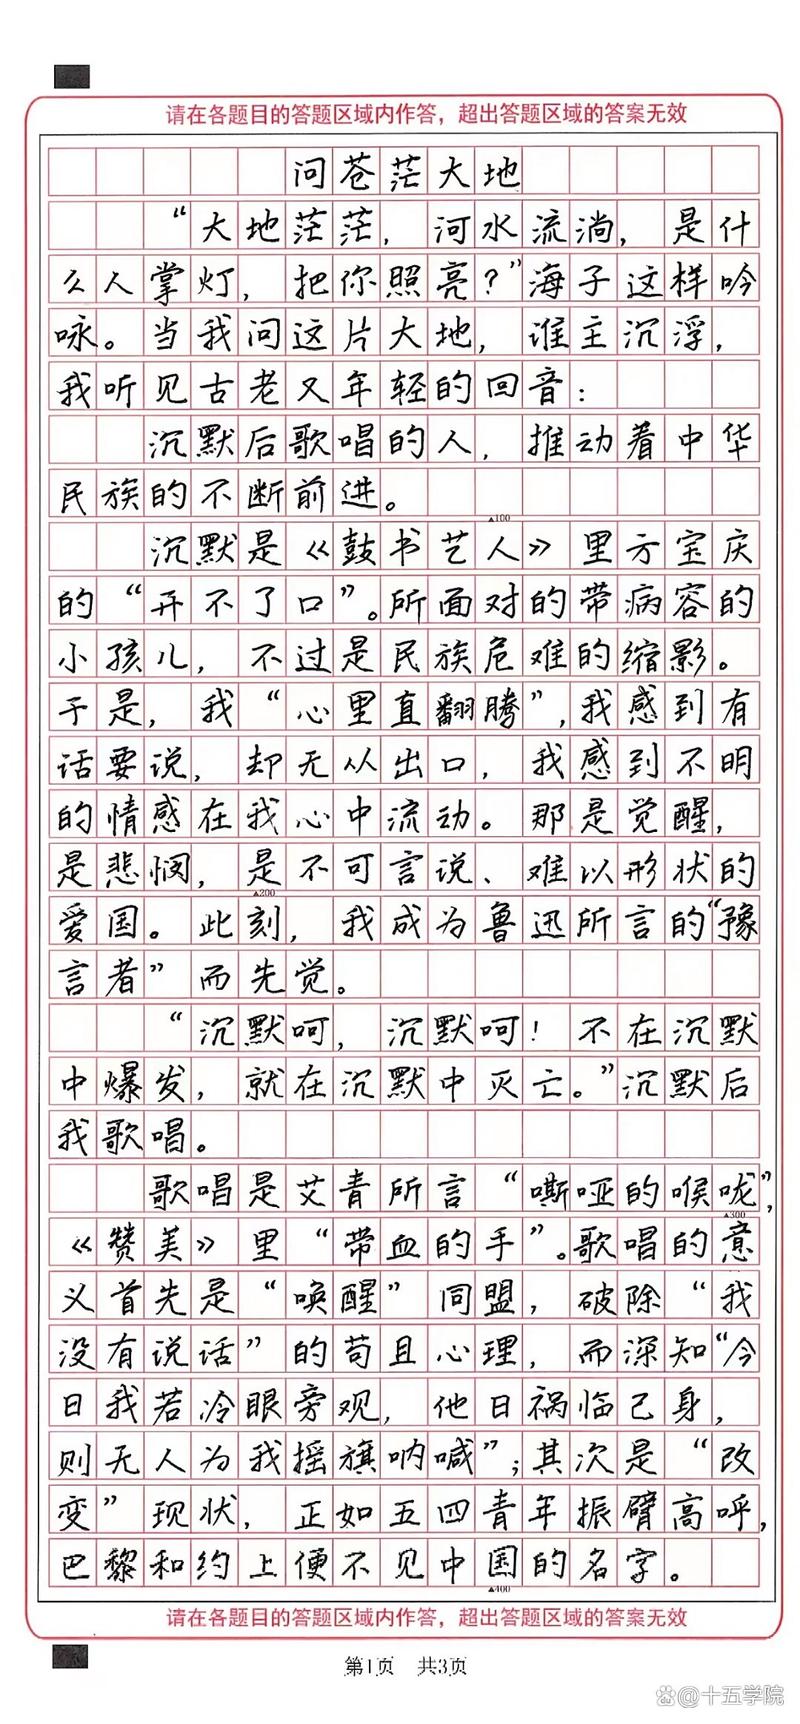 请在各题目的答题区域内作答，超出答题区域的答案无效
问苍茫大地
“大地茫茫，河水流淌，是什
么人掌灯，把你照亮？”海子这样吟
咏。当我问这片大地，谁主沉浮，
我听见古老又年轻的回音：
沉默后歌唱的人，推动着中华
民族的不断前进。
▲100
沉默是《鼓书艺人》里方宝庆
的“开不了口”。所面对的带病容的
小孩儿，不过是民族危难的缩影。
于是，我“心里直翻腾”，我感到有
话要说，却无从出口，我感到不明
的情感在我心中流动。那是觉醒，
是悲悯，是不可言说、难以形状的
▲200
爱国。此刻，我成为鲁迅所言的“豫
言者”而先觉。
“沉默呵，沉默呵！不在沉默
中爆发，就在沉默中灭亡。”沉默后
我歌唱。
歌唱是艾青所言“嘶哑的喉咙”，
▲300
《赞美》里“带血的手”。歌唱的意
义首先是“唤醒”同盟，破除“我
没有说话”的苟且心理，而深知“今
日我若冷眼旁观，他日祸临己身，
则无人为我摇旗呐喊”；其次是“改
变”现状，正如五四青年振臂高呼，
巴黎和约上便不见中国的名字。
▲400
请在各题目的答题区域内作答，超出答题区域的答案无效
第1页 共3页
@十五学院